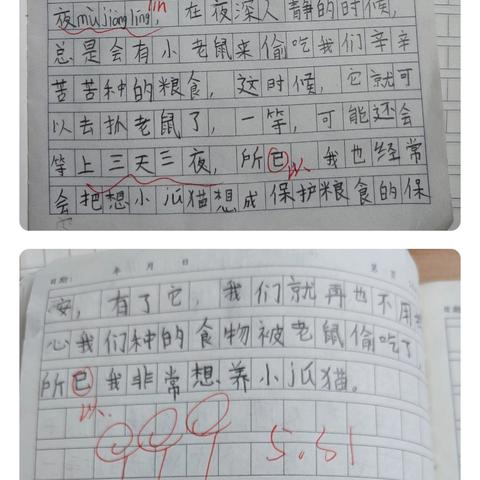 夜mùjiànglíng, 在夜深人静的时候,
lín
总是会有小老鼠来偷吃我们辛辛
苦苦种的粮食, 这时候, 它就可
以去扒老鼠了, 一等, 可能还会
等上三天三夜, 所已, 我也经常
以
会把想小瓜猫想成保护粮食的保
日期: 年 月 日
安, 有了它, 我们就再也不用担
心我们种的食物被老鼠偷吃了
所已我非常想养小瓜猫。
以
5.31